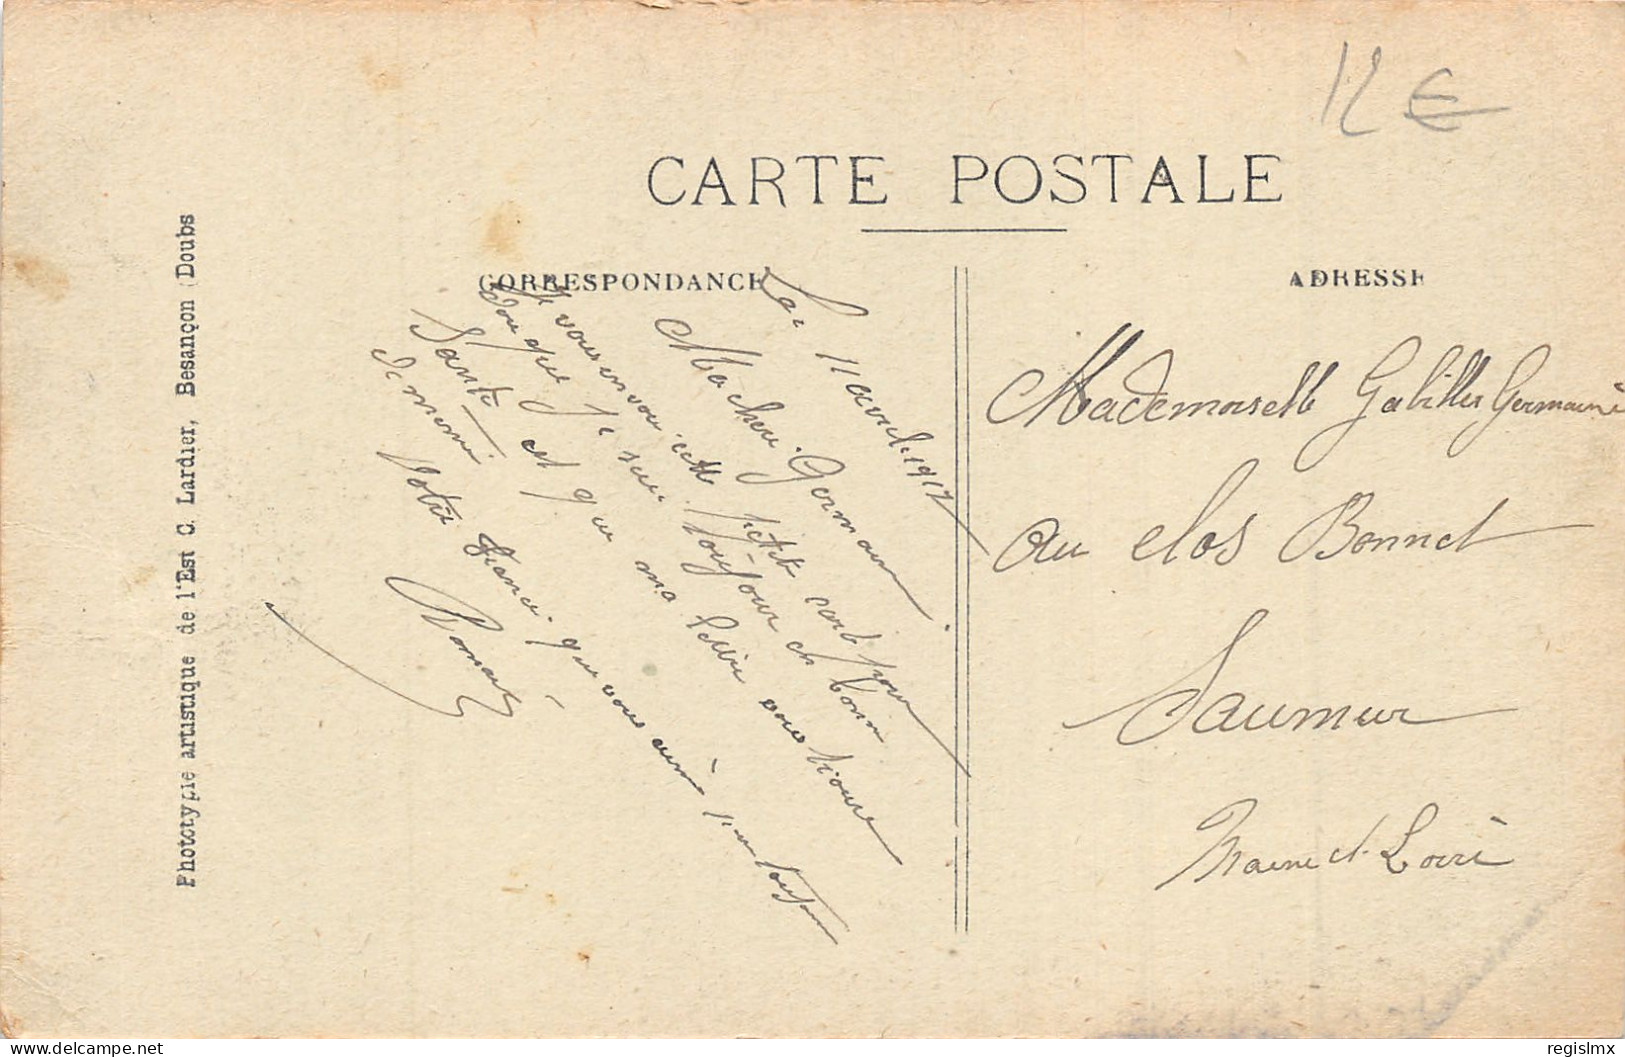 12 €
CARTE POSTALE
CORRESPONDANCE
ADRESSE
Phototypie artistique de l'Est C. Lardier, Besançon (Doubs
Le 11 avril 1917
Ma cheri Germaine
Je vous envoi cette petite carte pour
vou que je sui toujour en bonne
Santé et que ma lettre vous trouve
de meme
Votre fiance qui vous aime pour toujour
Mademoiselle Gabilles Germaine
au clos Bonnet
Saumur
Maine et Loire
www.delcampe.net
regislmx